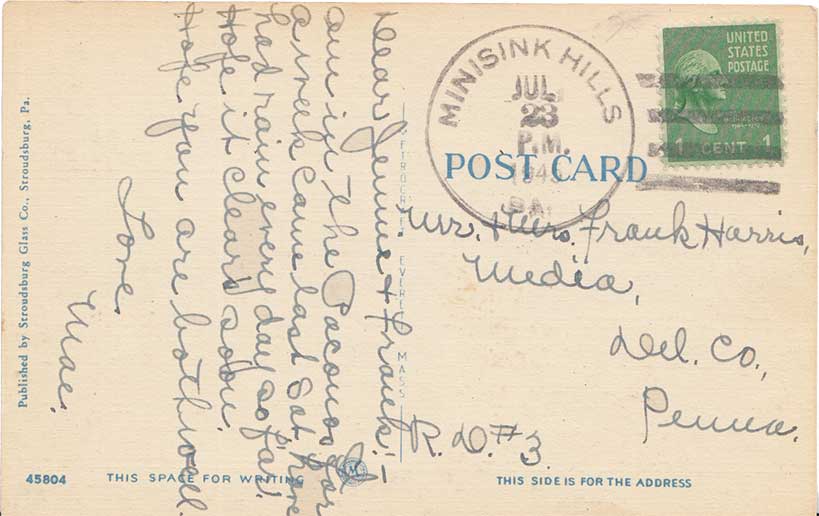 Dear Jennie & Frank:-
am in the Poconos for
a week came last Sat. have
had rain every day so far.
Hope it clears soon.
Hope you are both well.
Love
Mae.
Published by Stroudsburg Glass Co., Stroudsburg, Pa.
METROCRAFT EVERETT MASS
MINISINK HILLS
JUL
23
P.M.
PA.
UNITED
STATES
POSTAGE
1 CENT 1
POST CARD
Mr. + Mrs. Frank Harris,
Media,
Del. Co.,
Penna.
R. D. #3
45804
THIS SPACE FOR WRITING
M
THIS SIDE IS FOR THE ADDRESS